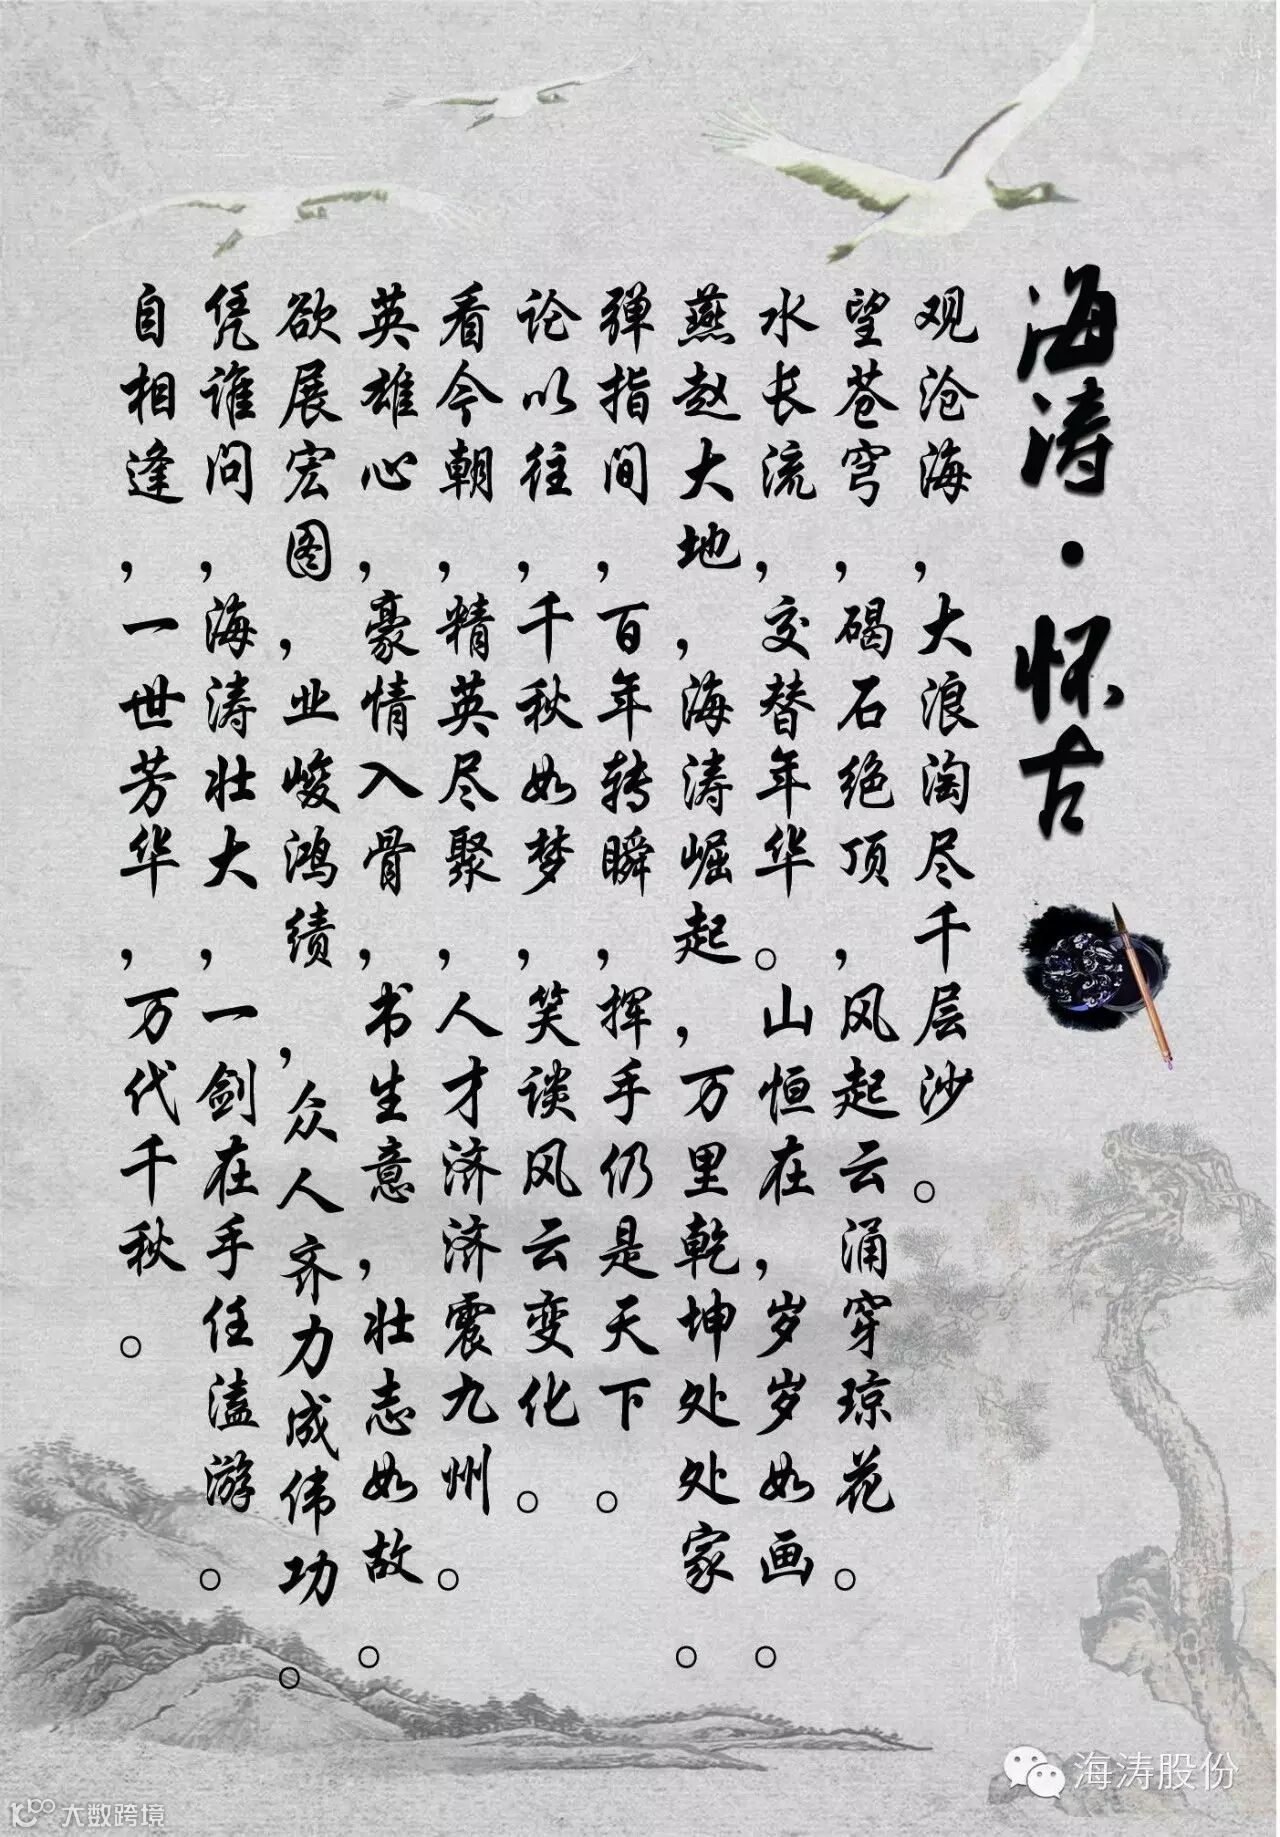 海涛·怀古
观沧海，大浪淘尽千层沙。
望苍穹，碣石绝顶，风起云涌穿琼花。
水长流，交替年华。山恒在，岁岁如画。
燕赵大地，海涛崛起。，万里乾坤处处家。
弹指间，百年转瞬，挥手仍是天下。
论以往，千秋如梦，笑谈风云变化。
看今朝，精英尽聚，人才济济震九州。
英雄心，豪情入骨，书生意，壮志如故。
欲展宏图，业峻鸿绩，众人齐力成伟功。
凭谁问，海涛壮大，一剑在手任溘游。
自相逢，一世芳华，万代千秋。
海涛股份
10100 大数跨境